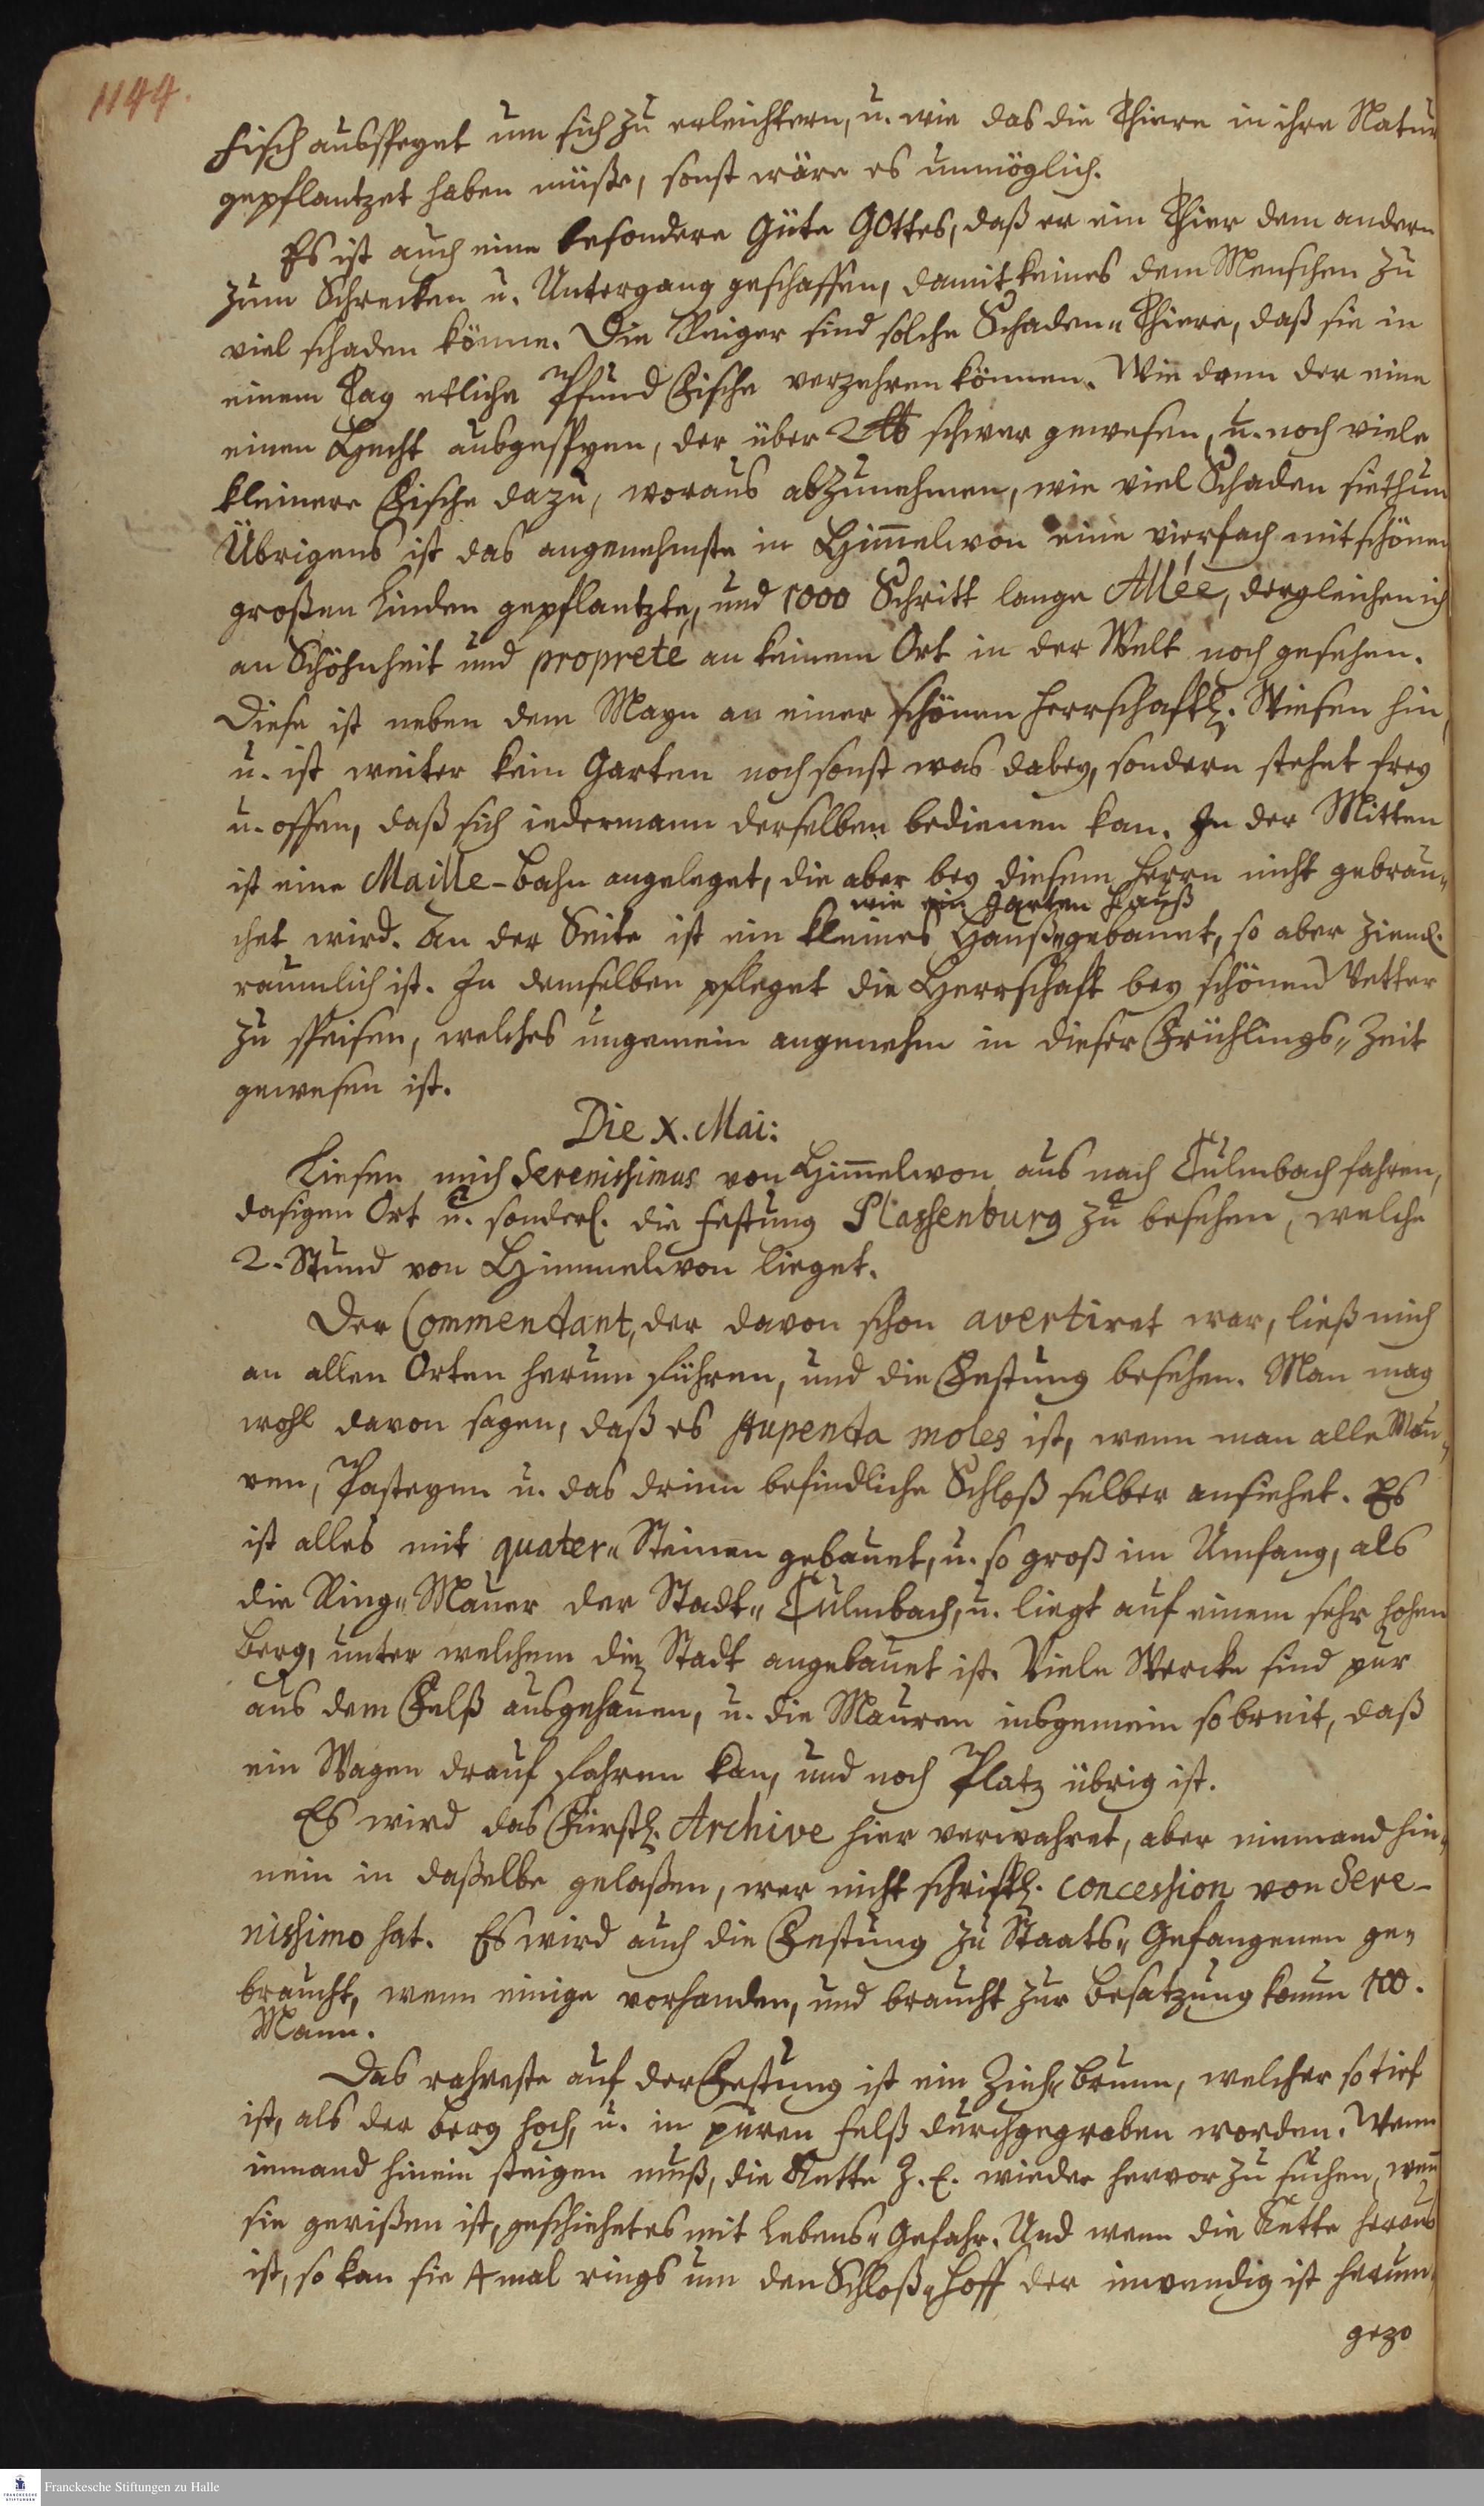 1144.
Fisch ausspeyet um sich zu erleichtern, u. wie das die Thiere in ihre Natur
gepflantzet haben müße, sonst wäre es unmöglich.
Es ist auch eine besondere Güte GOttes, daß er ein Thier dem andern
zum Schrecken u. Untergang geschaffen, damit keines dem Menschen zu
viel schaden könne. Die Reiger sind solche Schaden-Thiere, daß sie in
einem Tag etliche Pfund Fische verzehren können. Wie denn der eine
einen Hecht ausgespyen, der über 2 ℔ schwer gewesen, u. noch viele
kleinere Fische dazu, woraus abzunehmen, wie viel Schaden sie thun
Übrigens ist das angenehmste in Him̄elcron eine vierfach mit schönen
großen Linden gepflantzte, und 1000 Schritt lange Allée, dergleichen ich
an Schöhnheit und propreté an keinem Ort in der Welt noch gesehen.
Diese ist neben dem Mayn an einer schönen Herrschaftl. Wiesen hin,
u. ist weiter kein Garten noch sonst was dabey, sondern stehet frey
u. offen, daß sich iedermann derselben bedienen kan. In der Mitten
ist eine Maille-Bahn angeleget, die aber bey diesem Herrn nicht gebrau-
wie ein Garten Hauß
chet wird. An der Seite ist ein kleines Hauß gebauet, so aber zieml.
räumlich ist. In demselben pfleget die Herrschaft bey schönen Wetter
zu speisen, welches ungemein angenehm in dieser Frühlings-Zeit
gewesen ist.
Die X. Mai:
Liesen mich Serenissimus von Him̄elcron aus nach Culmbach fahren,
dasigen Ort u. sonderl. die Festung Plassenburg zu besehen, welche
2. Stund von Himmelcron lieget.
Der Commendant, der davon schon avertiret war, ließ mich
an allen Orten herum führen, und die Festung besehen. Man mag
wohl davon sagen, daß es stupenda moles ist, wenn man alle Mau-
ren, Pasteyen u. das drinn befindliche Schloß selber ansiehet. Es
ist alles mit quater-Steinen gebauet, u. so groß im Umfang, als
die Ring-Mauer der Stadt-Culmbach, u. liegt auf einem sehr hohen
Berg, unter welchem die Stadt angebauet ist. Viele Wercke sind pur
aus dem Felß ausgehauen, u. die Mauren insgemein so breit, daß
ein Wagen drauf fahren kan, und noch Platz übrig ist.
Es wird das Fürstl. Archive hier verwahret, aber niemand hin-
nein in daßelbe gelaßen, wer nicht schriftl. concession von Sere-
nissimo hat. Es wird auch die Festung zu Staats-Gefangenen ge-
braucht, wenn einige vorhanden, und braucht zur Besatzung kaum 100.
Mann.
Das rahreste auf der Festung ist ein Zieh-Brunn, welcher so tief
ist, als der Berg hoch, u. in puren Felß durchgegraben worden. Wenn
iemand hinein steigen muß, die Kette z. E. wieder hervor zu suchen, wen̄
sie gerißen ist, geschiehet es mit Lebens-Gefahr. Und wenn die Kette heraus
ist, so kan sie 4 mal rings um den Schloß-Hoff der inwendig ist herum-
gezo
Franckesche Stiftungen zu Halle